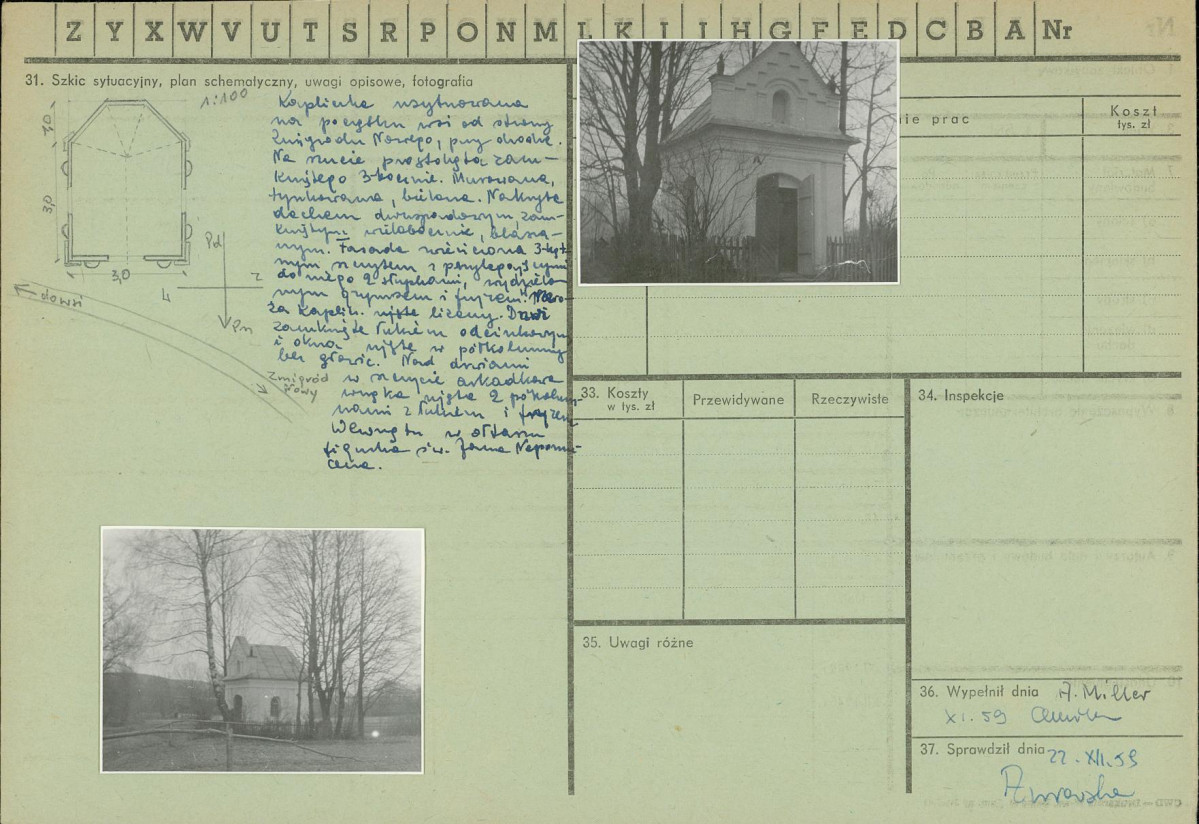 Z Y X W V U T S R P O N M L K J I H G F E D C B A Nr
31. Szkic sytuacyjny, plan schematyczny, uwagi opisowe, fotografia
1:100
Kapliczka usytuowana
na początku wsi od strony
Żmigrodu Nowego, przy drodze.
Na rzucie prostokąta zam-
kniętego 3-bocznie. Murowana,
tynkowana, bielona. Nakryta
dachem dwuspadowym, zam-
kniętym wielobocznie, blasza-
nym. Fasada zwieńczona 3-kąt-
nym szczytem z przylegającymi
do niego 2 słupkami, wydzielo-
nym gzymsem i fryzem.
kaplic. nisze Drzwi
zamknięte łukiem odcinkowym
i okna ujęte w półkolumny
bez głowic. Nad drzwiami
w szczycie arkadkowa
wnęka ujęta 2 półkolum-
nami z łukiem i fryzem
Wewnątrz w ołtarzu
figurka św. Jana Nepomu-
cena.
1,0
3,0
3,0
Pd
Z
Pn
do wsi
Żmigród
Nowy
nie prac
Koszt
tys. zł
33. Koszty
w tys. zł
Przewidywane
Rzeczywiste
34. Inspekcje
35. Uwagi różne
36. Wypełnił dnia A. Miller
XI. 59
37. Sprawdził dnia 22. XII. 59